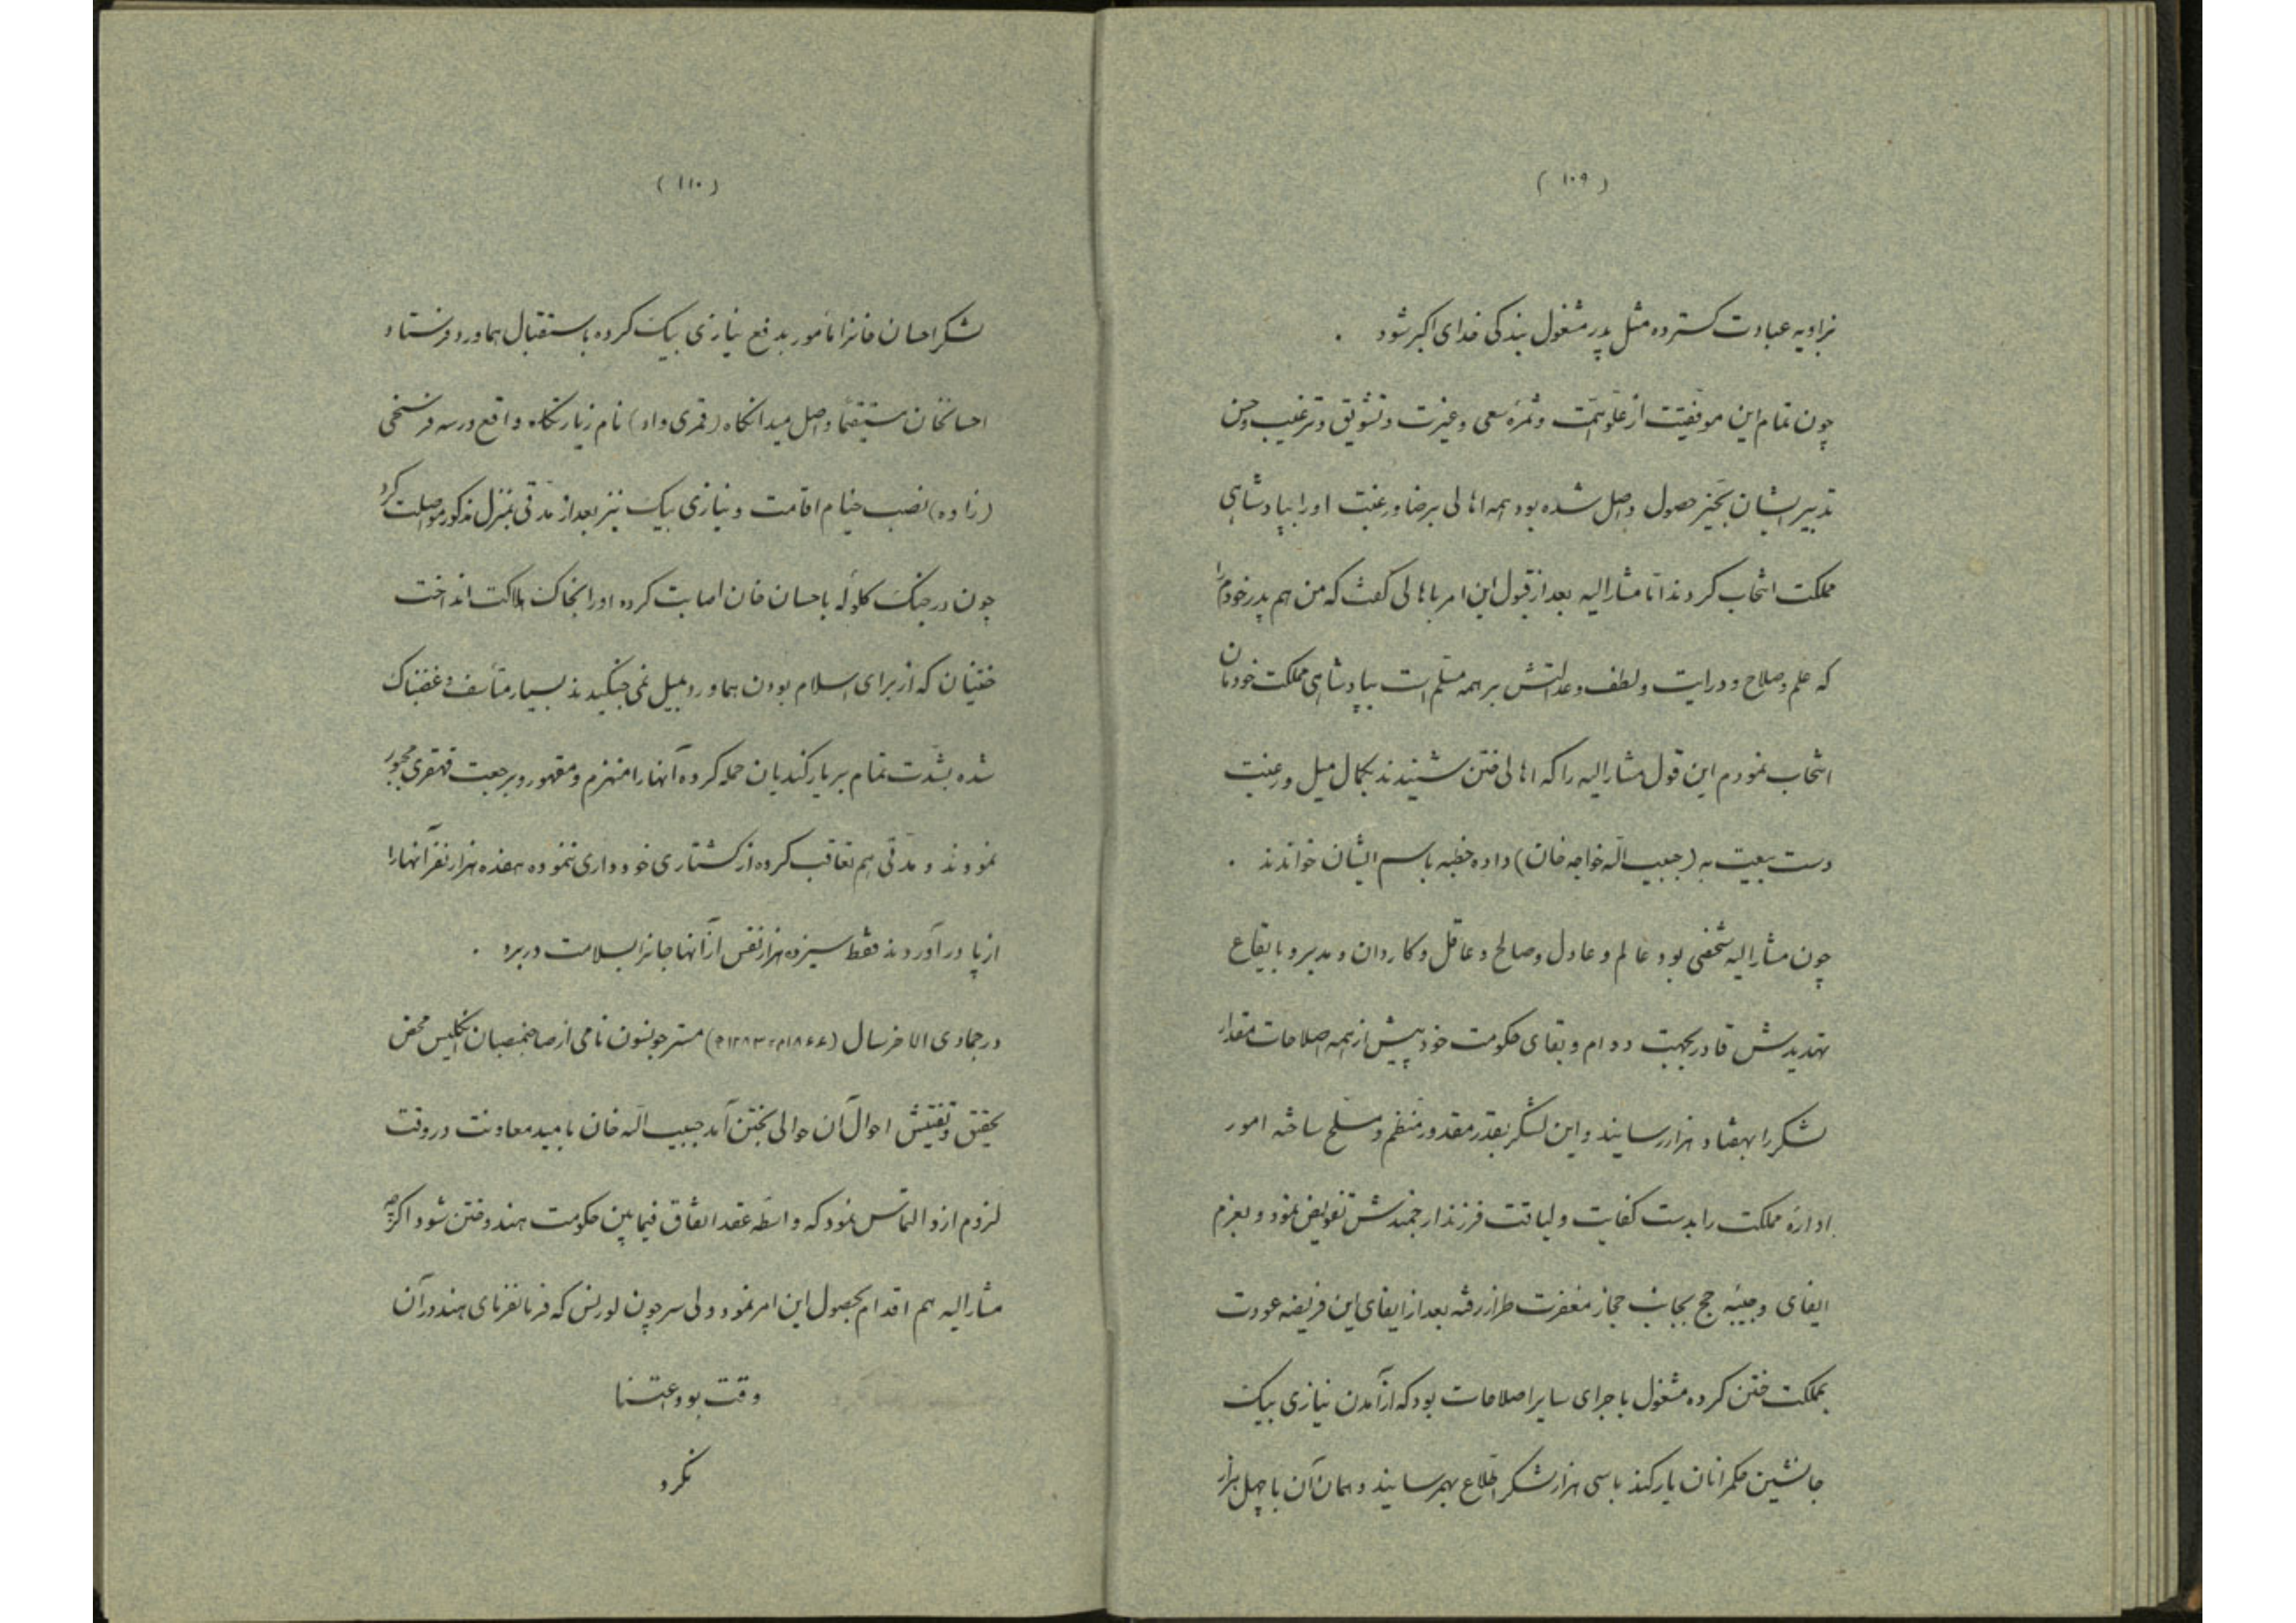 (۱۰۹)
بزاویه عبادت کسترده مثل پدر مشغول بندکی خدای اکبر شود .
چون تمام این موفقیت از علو همّت و ثمرۀ سعی و غیرت و تشویق و ترغیب و حسن
تدبیر ایشان بحیّز حصول واصل شده بود همه اهالی برضا و رغبت او را بپادشاهی
مملکت انتخاب کردند امّا مشارالیه بعد از قبول این امر باهالی کفت که من هم پدر خودم را
که علم و صلاح و درایت و لطف و عدالتش بر همه مسلّم است بپادشاهی مملکت خودمان
انتخاب نمودم این قول مشارالیه را که اهالی ختن شنیدند بکمال میل و رغبت
دست بیعت به (حبیب الله خواجه خان) داده خطبه باسم ایشان خواندند .
چون مشارالیه شخصی بود عالم و عادل و صالح و عاقل و کاردان و مدبر و بایقاع
تهدیدش قادر بجهت دوام و بقای حکومت خود پیش از همه اصلاحات مقدار
لشکر را بهفتاد هزار رسانید و این لشکر بقدر مقدور منظّم و مسلّح ساخته امور
ادارۀ مملکت را بدست کفایت و لیاقت فرزند ارجمندش تفویض نمود و بعزم
ایفای وجیبۀ حج بجانب حجاز مغفرت طراز رفته بعد از ایفای این فریضه عودت
بمملکت ختن کرده مشغول باجرای سایر اصلاحات بود که از آمدن نیازی بیک
جانشین حکمرانان یارکند باسی هزار لشکر اطّلاع بهمرسانید و همان آن با چهل هزار
(۱۱۰)
لشکر احسان خانرا مأمور بدفع نیازی بیک کرده باستقبال هماورد فرستاد
احسانخان مستقیماً واصل میدانکاه (قمری داد) نام زیارتکاه واقع در سه فرسخی
(زاوه) نصب خیام اقامت و نیازی بیک نیز بعد از مدّتی بمنزل مذکور مواصلت کرد
چون در جنک کلوله باحسان خان اصابت کرده او را بخاک هلاکت انداخت
ختنیان که از برای اسلام بودن هماورد بمیل نمی جنکیدند بسیار متأسف و غضبناک
شده بشدّت تمام بر یارکندیان حمله کرده آنها را منهزم و مقهور و برجعت قهقری مجبور
نمودند و مدّتی هم تعاقب کرده از کشتاری خودداری ننموده هفده هزار نفر آنها را
از پا در آوردند فقط سیزده هزار نفس از آنها جانرا بسلامت در برد .
در جمادی الاخر سال (۱۸۶۶م - ۱۲۸۳ه) مستر جونسون نامی از صاحبمنصبان انکلیس محض
تحقیق و تفتیش احوال آن حوالی بختن آمد حبیب الله خان بامید معاونت در وقت
لزوم ازو التماس نمود که واسطه عقد اتفاق فیمابین حکومت هند و ختن شود اکرچه
مشارالیه هم اقدام بحصول این امر نمود ولی سر جون لورنس که فرمانفرمای هند در آن
وقت بود اعتنا
نکرد